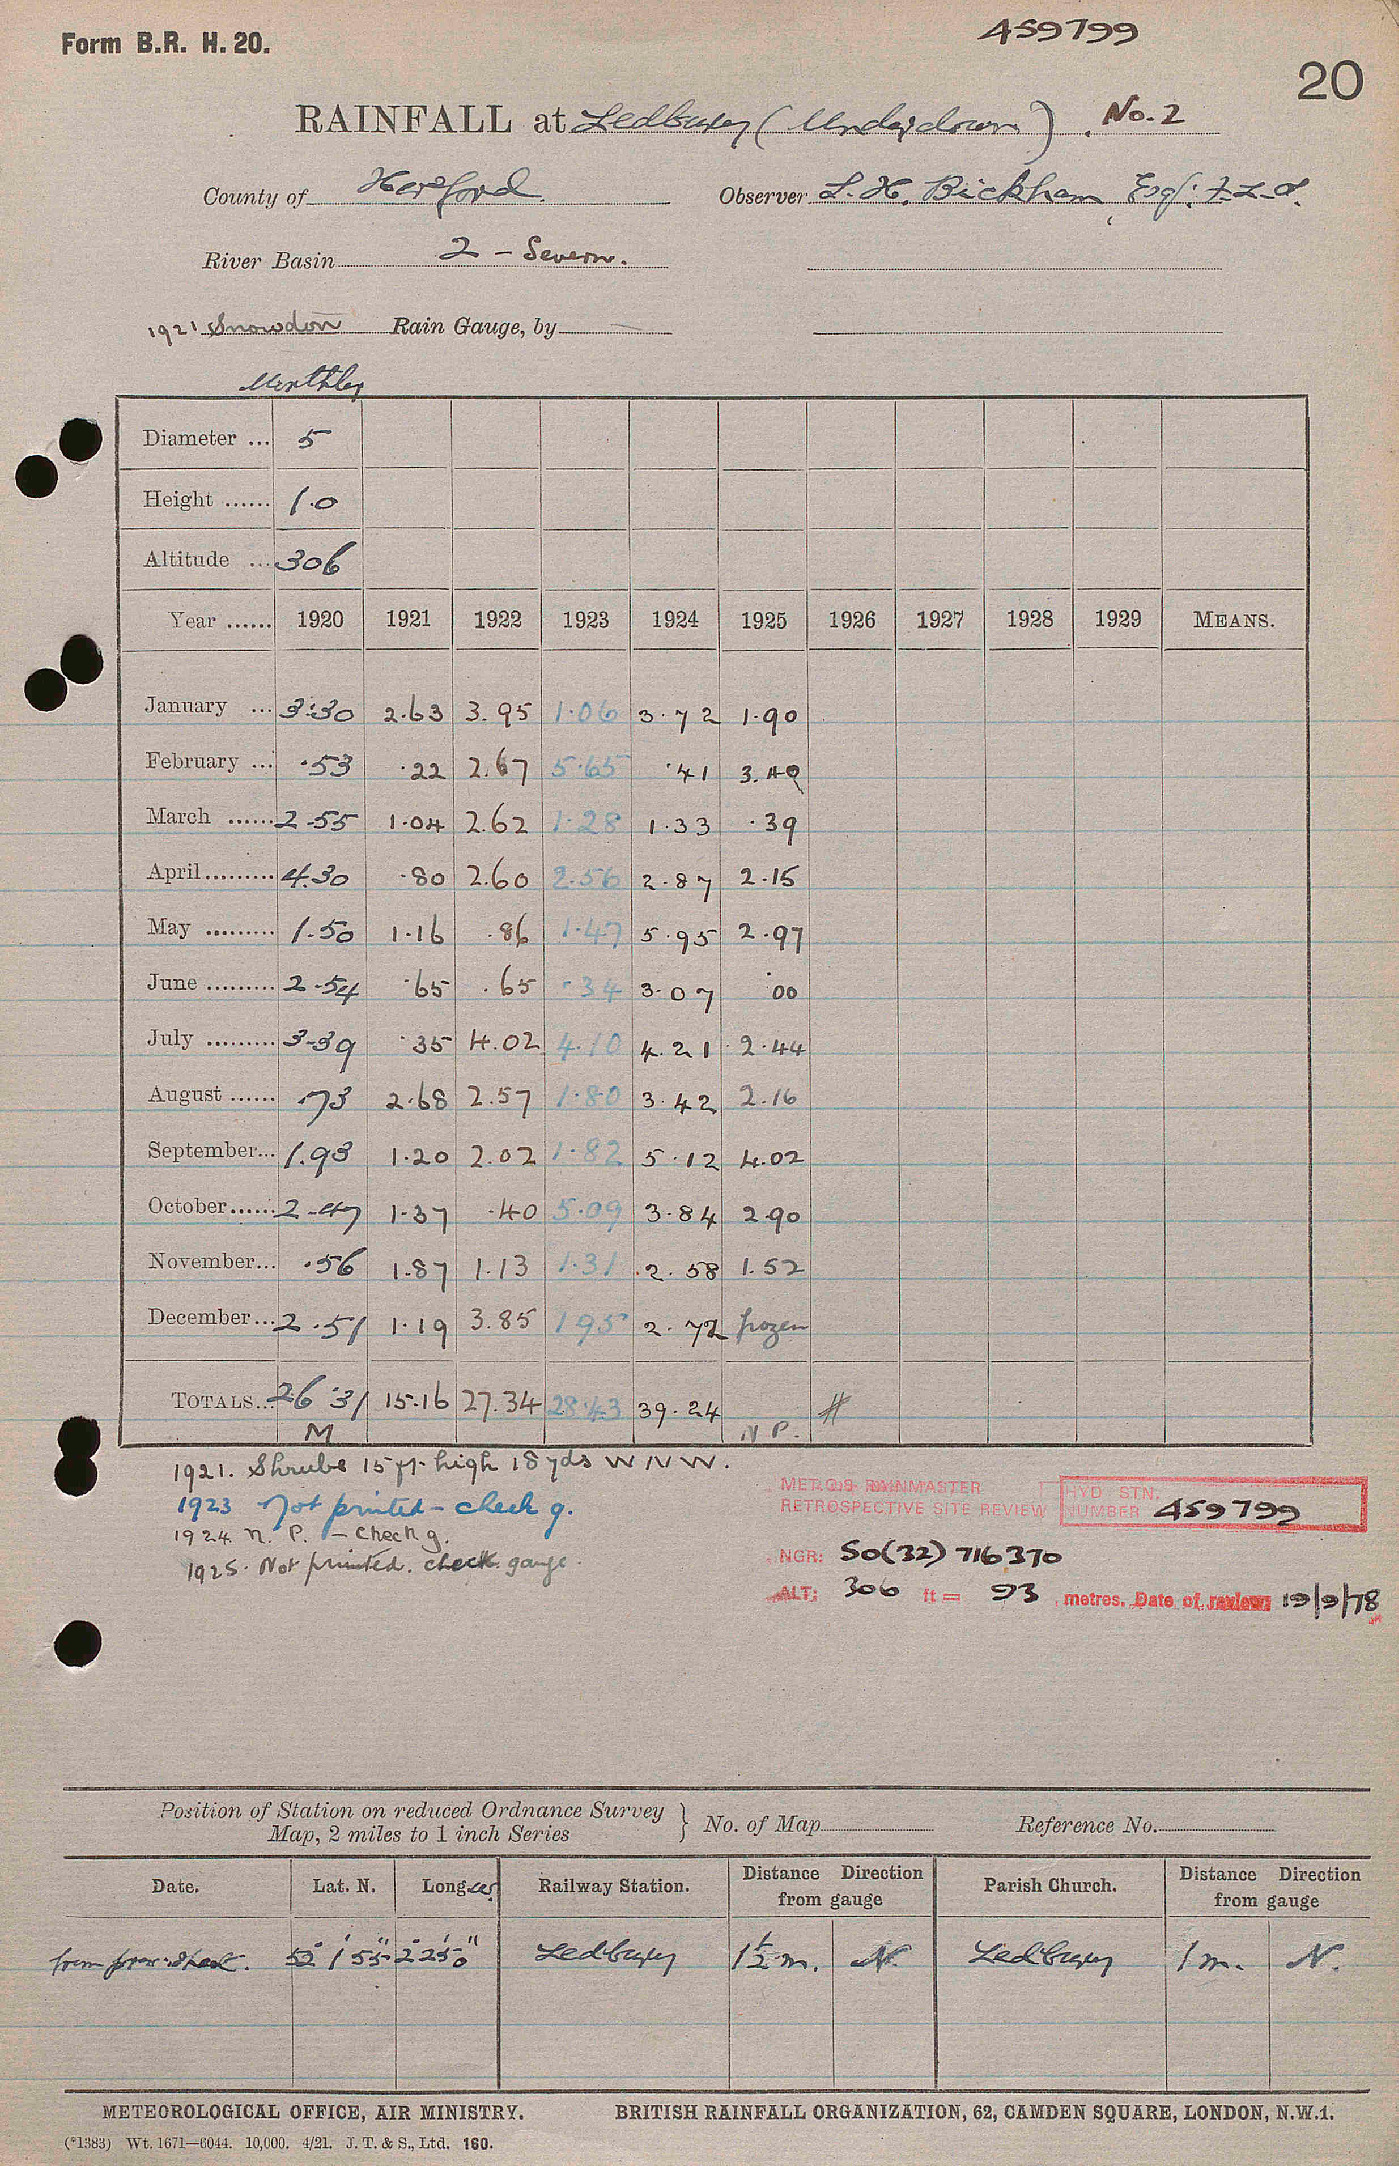 Form B.R. H. 20.
459799
20
RAINFALL at Ledbury (Underdown) No. 2
County of Hereford. Observer S. H. Bickham, Esq. F.L.S.
River Basin 2 - Severn.
1921 Snowdon Rain Gauge, by
Monthly
Diameter ... 5
Height ...... 1.0
Altitude ... 306
Year ...... 1920 1921 1922 1923 1924 1925 1926 1927 1928 1929 MEANS.
January ... 3.30 2.63 3.95 1.06 3.72 1.90
February ... .53 .22 2.67 5.65 .41 3.
March ...... 2.55 1.04 2.62 1.28 1.33 .39
April ......... 4.30 .80 2.60 2.56 2.87 2.15
May ......... 1.50 1.16 .86 1.47 5.95 2.97
June ......... 2.54 .65 .65 .34 3.07 .00
July ......... 3.39 .35 4.02 4.10 4.21 2.44
August ...... .73 2.68 2.57 1.80 3.42 2.16
September... 1.93 1.20 2.02 1.82 5.12 4.02
October ...... 2.47 1.37 .40 5.09 3.84 2.90
November... .56 1.87 1.13 1.31 2.58 1.52
December... 2.51 1.19 3.85 1.95 2.72 frozen
TOTALS... 26.31 15.16 27.34 28.43 39.24 #
M N P.
1921. Shrubs 15 ft high 18 yds W N W.
1923 Not printed - check g.
1924 N. P. - Check g.
1925. Not printed. check gauge.
MET.O.8 RAINMASTER
RETROSPECTIVE SITE REVIEW
HYD STN.
NUMBER 459799
NGR: SO(32) 716370
ALT: 306 ft = 93 metres. Date of review: 19/9/78
Position of Station on reduced Ordnance Survey
Map, 2 miles to 1 inch Series } No. of Map Reference No.
Date. Lat. N. Long. W. Railway Station. Distance Direction from gauge Parish Church. Distance Direction from gauge
from 52° 1' 55" 2° 25' 0" Ledbury 1½ m. N. Ledbury 1 m. N.
METEOROLOGICAL OFFICE, AIR MINISTRY. BRITISH RAINFALL ORGANIZATION, 62, CAMDEN SQUARE, LONDON, N.W.1.
(*1383) Wt. 1671—6044. 10,000. 4/21. J. T. & S., Ltd. 160.